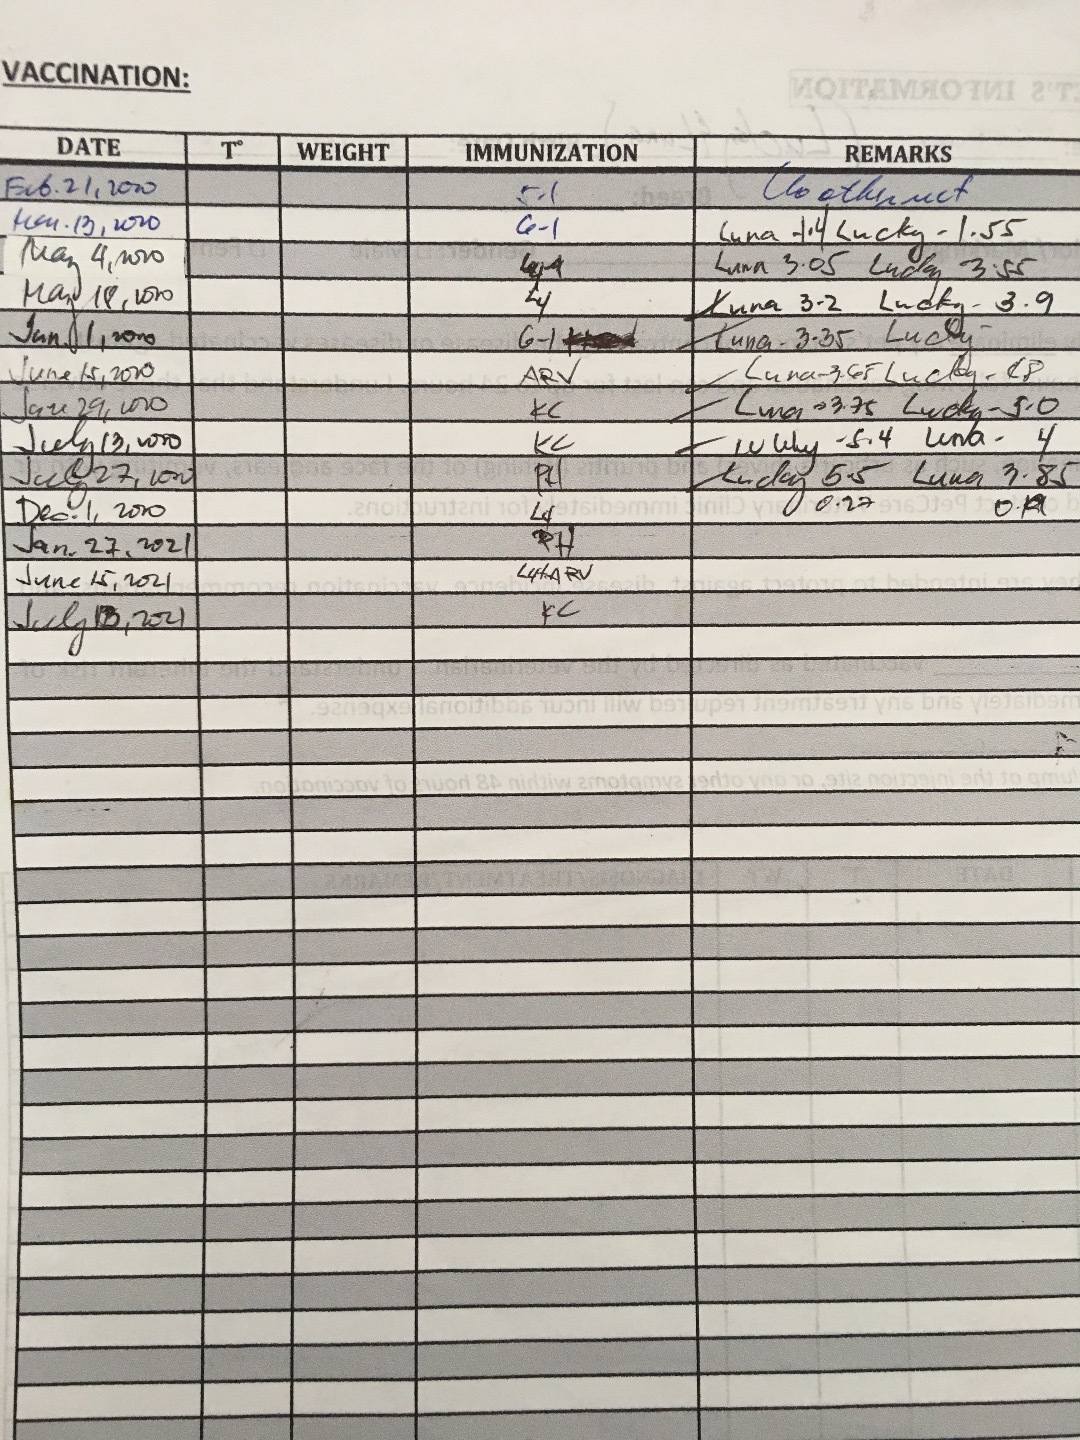 VACCINATION:
DATE T° WEIGHT IMMUNIZATION REMARKS
Feb. 21, 2020 5-1
Mar. 13, 2020 6-1 Luna -1.4 Lucky - 1.55
May 4, 2020 Luna 3.05 Lucky 3.55
May 18, 2020 L4 Luna 3-2 Lucky - 3.9
Jun 1, 2020 6-1 Luna - 3.35 Lucky -
June 15, 2020 ARV Luna-3.65 Lucky - 4.8
June 29, 2020 KC Luna 3.75 Lucky - 5.0
July 13, 2020 KC Lucky - 5.4 Luna - 4
July 27, 2020 PH Lucky 5.5 Luna 3.85
Dec. 1, 2020 L4 0.27 0.19
Jan. 27, 2021 PH
June 15, 2021 L4+ARV
July 13, 2021 KC